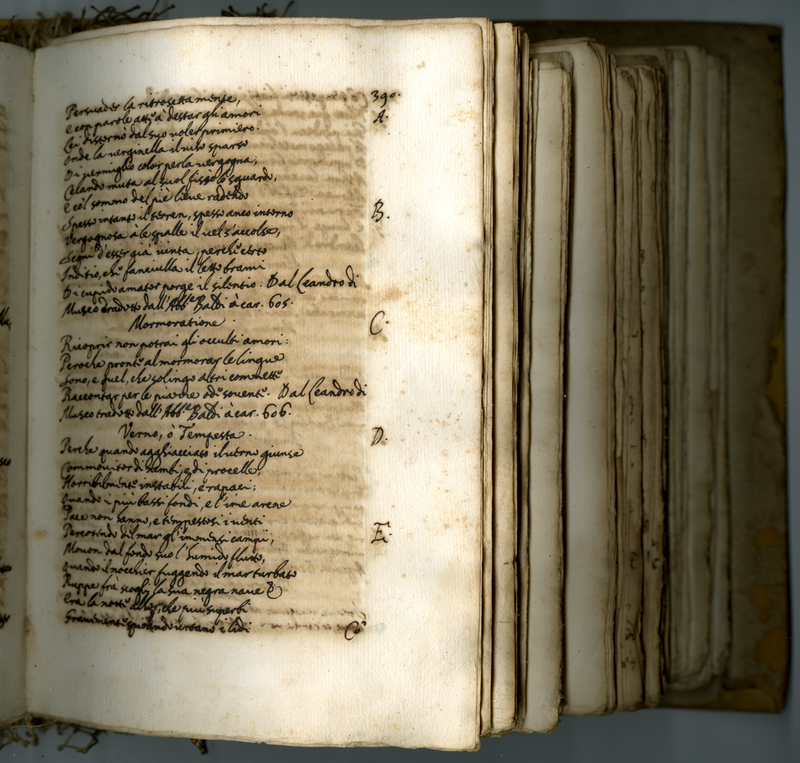 390.
Persuader la ritrosetta mente,
A.
e con parole atte à destar gli amori
Lei distornò dal suo voler primiero.
Onde la verginella il viso sparso
Di vermiglio color per la vergogna,
Celando muta al suol fisso lo sguardo,
e col sommo del piè lieve radendo
Spesso intanto il terren, spesso anco intorno
B.
Vergognosa à le spalle il vel s'accolse,
Segni d'esser già vinta, perche certo
Inditio, che fanciulla il letto brami
Di cupido amator porge il silentio. Dal Leandro di
Museo tradotto dall'Abb.te Baldi à car. 605.
Mormoratione.
C.
Ricoprir non potrai gli occulti amori:
Peroche pronte al mormorar le lingue
Sono, e quel, che solingo altri commette
Raccontar per le piazze ode sovente. Dal Leandro di
Museo tradotto dall'Abb.te Baldi à car. 606.
Verno, ò Tempesta.
D.
Perche quando agghiacciato il verno giunse
Commovitor di nembi, e di procelle,
Horribilmente instabili, e rapaci;
Quando i più bassi fondi, e l'ime arene
Pace non hanno, e tempestosi i venti
Percotendo del mar gl'immensi campi,
E.
Movon dal fondo suo l'humido flutto,
Quando il nocchier fuggendo il mar turbato
Ruppe frà scogli la sua negra nave &
Era la notte allor, che più superbi
Gravemente spirando urtano i lidi
Co'